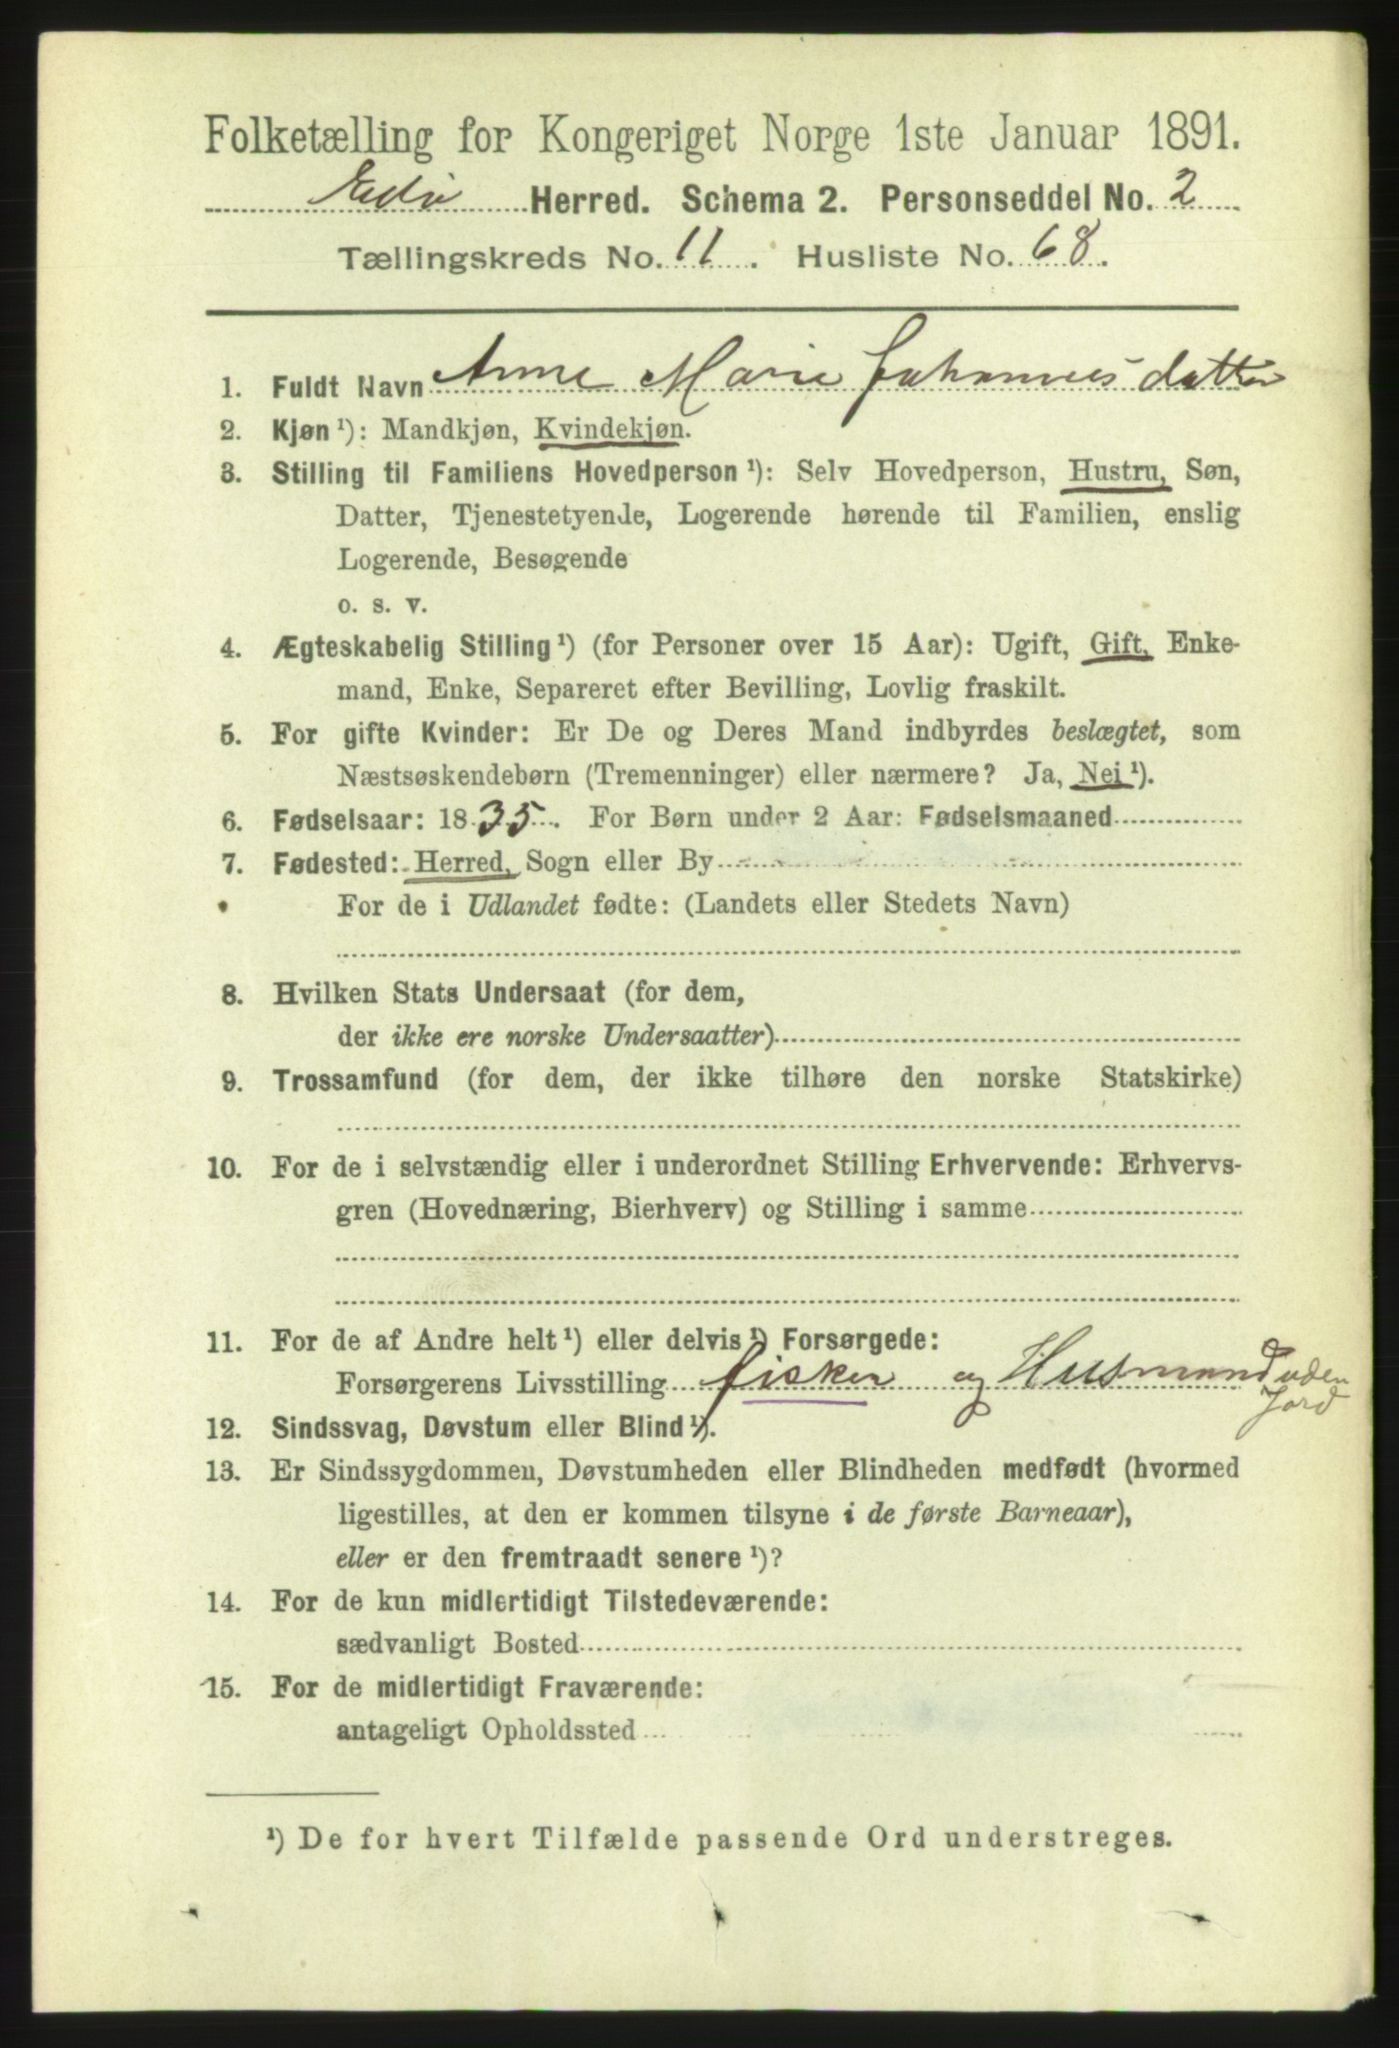 Folketælling for Kongeriget Norge 1ste Januar 1891.
Edø Herred. Schema 2. Personseddel No. 2
Tællingskreds No. 11. Husliste No. 68.
1. Fuldt Navn Anne Marie Johannesdatter
2. Kjøn¹): Mandkjøn, Kvindekjøn.
3. Stilling til Familiens Hovedperson¹): Selv Hovedperson, Hustru, Søn,
Datter, Tjenestetyende, Logerende hørende til Familien, enslig
Logerende, Besøgende
o. s. v.
4. Ægteskabelig Stilling¹) (for Personer over 15 Aar): Ugift, Gift, Enke-
mand, Enke, Separeret efter Bevilling, Lovlig fraskilt.
5. For gifte Kvinder: Er De og Deres Mand indbyrdes beslægtet, som
Næstsøskendebørn (Tremenninger) eller nærmere? Ja, Nei¹).
6. Fødselsaar: 1835. For Børn under 2 Aar: Fødselsmaaned
7. Fødested: Herred, Sogn eller By
For de i Udlandet fødte: (Landets eller Stedets Navn)
8. Hvilken Stats Undersaat (for dem,
der ikke ere norske Undersaatter)
9. Trossamfund (for dem, der ikke tilhøre den norske Statskirke)
10. For de i selvstændig eller i underordnet Stilling Erhvervende: Erhvervs-
gren (Hovednæring, Bierhverv) og Stilling i samme
11. For de af Andre helt¹) eller delvis¹) Forsørgede:
Forsørgerens Livsstilling fisker og Husmand uden
Jord
12. Sindssvag, Døvstum eller Blind¹).
13. Er Sindssygdommen, Døvstumheden eller Blindheden medfødt (hvormed
ligestilles, at den er kommen tilsyne i de første Barneaar),
eller er den fremtraadt senere¹)?
14. For de kun midlertidigt Tilstedeværende:
sædvanligt Bosted
15. For de midlertidigt Fraværende:
antageligt Opholdssted
¹) De for hvert Tilfælde passende Ord understreges.